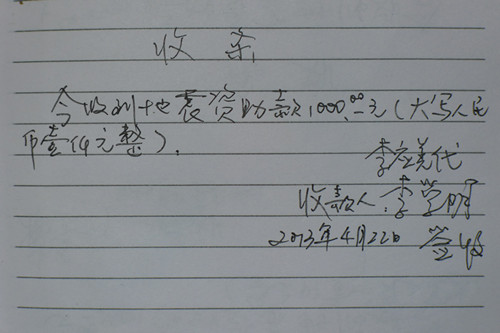 收条
今收到地震资助款1000.00元(大写人民
币壹仟元整).
李应美代
收款人:李学明
2013年4月22日 签收